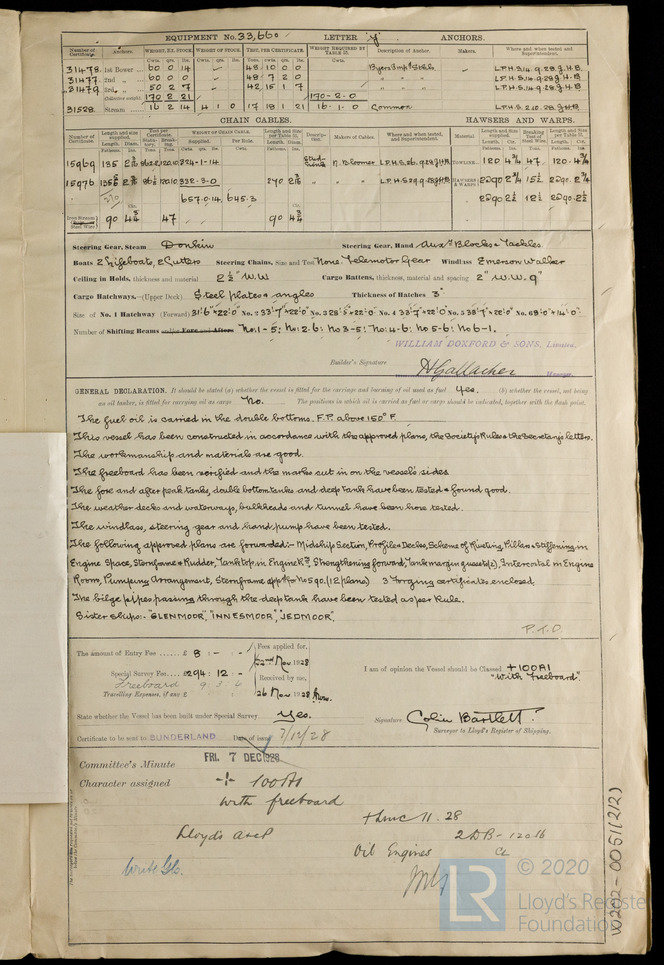 EQUIPMENT No. 33,660 LETTER "y" ANCHORS.
Number of Certificate. Anchors. WEIGHT, EX. STOCK. WEIGHT OF STOCK. TEST, PER CERTIFICATE. WEIGHT REQUIRED BY TABLE Description of Anchor. Makers. Where and when tested and Superintendent.
31478. 1st Bower 60 0 14 48 10 0 0 L.P.H.S. 14.9.28. J.H.B.
31477. 2nd " 60 0 0 48 7 2 0 L.P.H.S. 14.9.28. J.H.B.
31479. 3rd " 50 2 7 42 15 1 7 L.P.H.S. 14.9.28. J.H.B.
Collective weight 170 2 21 170-2-0
31528. Stream 16 2 14 4 1 0 17 18 1 21 16-1-0 Common L.P.H.S. 2.10.28. J.H.B.
CHAIN CABLES. HAWSERS AND WARPS.
Number of Certificate. Length and size supplied. Test per Certificate. WEIGHT OF CHAIN CABLE. Length and size per Table Description. Makers of Cables. Where and when tested, and Superintendent. Material. Length and size supplied. Breaking Test of Steel Wire. Length and size per Table
15969 135 324-1-14 N. Bloomer L.P.H.S. 26.9.28 J.H.B. TOWLINE. 120 4¾ 47. 120. 4¾
15976 332-3-0 270 " " L.P.H.S. 29.9.28 J.H.B. HAWSERS & WARPS 2@90 2¾ 15½ 2@90. 2¾
657-0-14 645.3 2@90 2½ 12½ 2@90. 2½
90 47 90
Steering Gear, Steam Donkin Steering Gear, Hand Aux: Blocks & Tackles.
Boats 2 Lifeboats, 2 Cutters Steering Chains, Size and Test None Telemotor Gear Windlass Emerson Walker
Ceiling in Holds, thickness and material 2½" W.W Cargo Battens, thickness, material and spacing 2" W.W. 9"
Cargo Hatchways.—(Upper Deck) Steel plates & angles Thickness of Hatches 3"
Size of No. 1 Hatchway (Forward) 31'6" × 22'0" No. 2 33'7" × 22'0" No. 3 No. 4 33'7" × 22'0" No. 5 33'7" × 22'0" No. 6
Number of Shifting Beams No: 1-5; No: 2-6; No 3-5; No: 4-6; No 5-6; No 6-1.
WILLIAM DOXFORD & SONS, Limited.
Builder's Signature H Gallacher Manager.
GENERAL DECLARATION. It should be stated (a) whether the vessel is fitted for the carriage and burning of oil used as fuel Yes. (b) whether the vessel, not being
an oil tanker, is fitted for carrying oil as cargo No. The positions in which oil is carried as fuel or cargo should be indicated, together with the flash point.
The fuel oil is carried in the double bottoms. F.P. above 150° F.
This vessel has been constructed in accordance with the approved plans, the Society's Rules & the Secretary's letters.
The workmanship and materials are good.
The freeboard has been verified and the marks cut in on the vessel's sides
The fore and after peak tanks, double bottom tanks and deep tank have been tested & found good.
The weather decks and waterways, bulkheads and tunnel have been hose tested.
The windlass, steering gear and hand pump have been tested.
The following approved plans are forwarded:- Midship Section, Profile & Decks, Scheme of Riveting, Pillars & Stiffening in
Engine Space, Sternframe & Rudder, Tank top in Engine Rm, Strengthening forward, Tank margin gussets(2), Intercostal in Engine
Room, Pumping Arrangement, Sternframe appd for No 590. (12 plans) 3 Forging certificates enclosed.
The bilge pipes passing through the deep tank have been tested as per Rule.
Sister ships:- "GLENMOOR", "INNESMOOR", "JEDMOOR".
P.T.O.
The amount of Entry Fee £ 8 : - : - Fees applied for,
22nd Nov 1928
Special Survey Fee £294 : 12 : - Received by me,
Freeboard 9. 3. 4
Travelling Expenses, if any £ 26 Nov 1928
I am of opinion the Vessel should be Classed +100A1
"With Freeboard".
State whether the Vessel has been built under Special Survey Yes. Signature Colin Bartlett.
Surveyor to Lloyd's Register of Shipping.
Certificate to be sent to SUNDERLAND Date of issue 7/12/28
Committee's Minute FRI. 7 DEC 1928
Character assigned + 100A1
with freeboard
+ LMC 11.28
Lloyds A&CP 2DB-120lb
Oil Engines CL
Write Slc.
W202-0051(2/2)
LR
© 2020
Lloyd's Register
Foundation